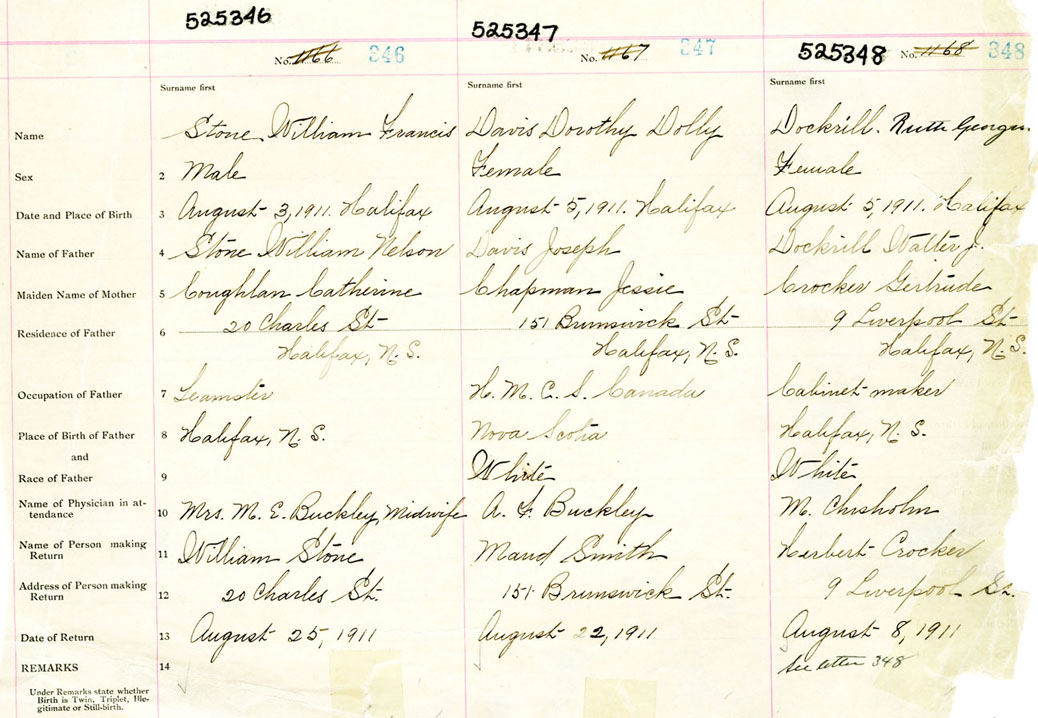 525346 525347 525348
No. 1166 346 No. 1167 347 No. 1168 348
Surname first Surname first Surname first
Name Stone William Francis Davis Dorothy Dolly Dockrill. Ruth
Sex 2 Male Female Female
Date and Place of Birth 3 August 3, 1911. Halifax August 5, 1911. Halifax August 5, 1911. Halifax
Name of Father 4 Stone William Nelson Davis Joseph Dockrill Walter J.
Maiden Name of Mother 5 Coughlan Catherine Chapman Jessie Crocker Gertrude
Residence of Father 6 20 Charles St 151 Brunswick St 9 Liverpool St
Halifax, N.S. Halifax, N.S. Halifax, N.S.
Occupation of Father 7 Teamster H.M.C.S. Canada Cabinet-maker
Place of Birth of Father 8 Halifax, N.S. Nova Scotia Halifax, N.S.
and
Race of Father 9 White White
Name of Physician in at-
tendance 10 Mrs. M. E. Buckley, Midwife A. F. Buckley M. Chisholm
Name of Person making
Return 11 William Stone Maud Smith Herbert Crocker
Address of Person making
Return 12 20 Charles St. 151 Brunswick St. 9 Liverpool St.
Date of Return 13 August 25, 1911 August 22, 1911 August 8, 1911
REMARKS 14 See letter 348
Under Remarks state whether
Birth is Twin, Triplet, Ille-
gitimate or Still-birth.